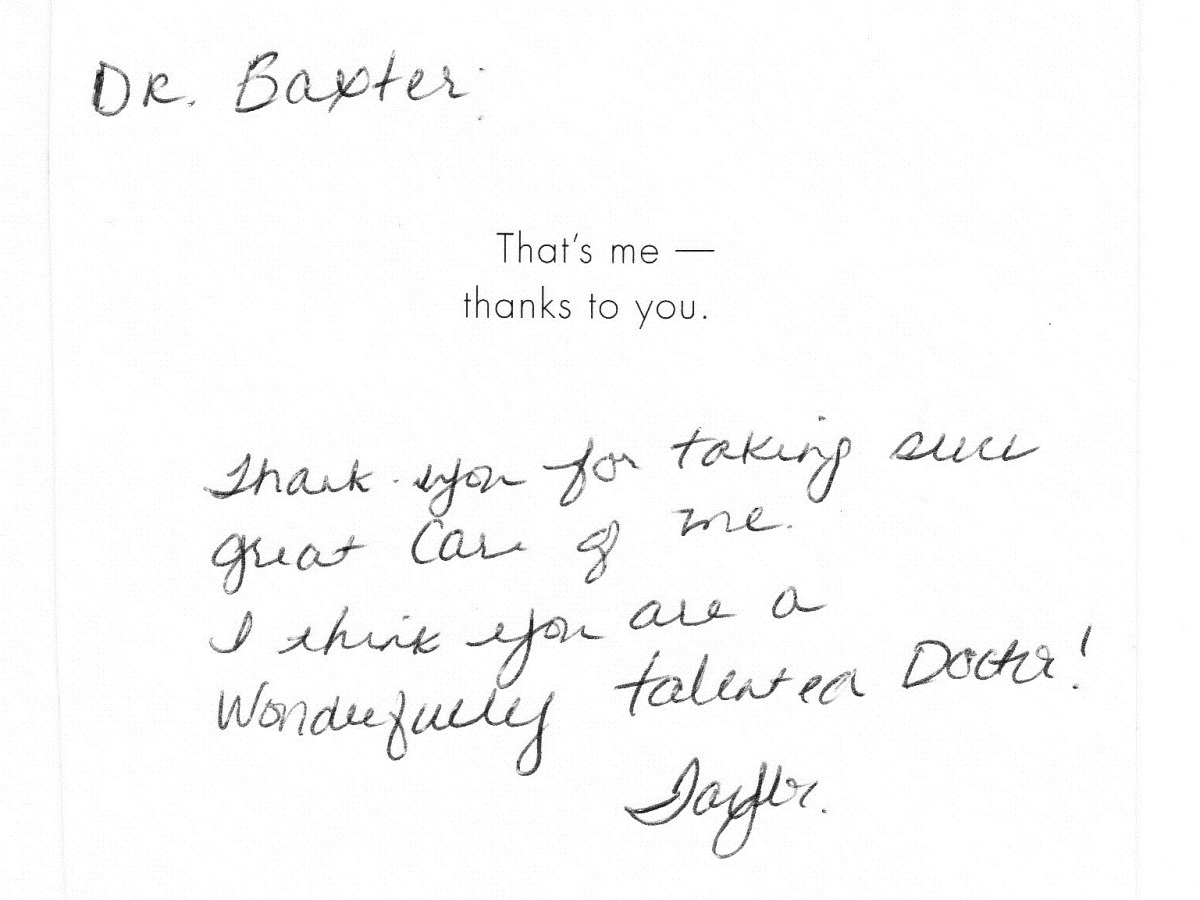 DR. Baxter:
That's me —
thanks to you.
Thank you for taking such
great Care of me.
I think you are a
Wonderfully talented Doctor!
Taylor.